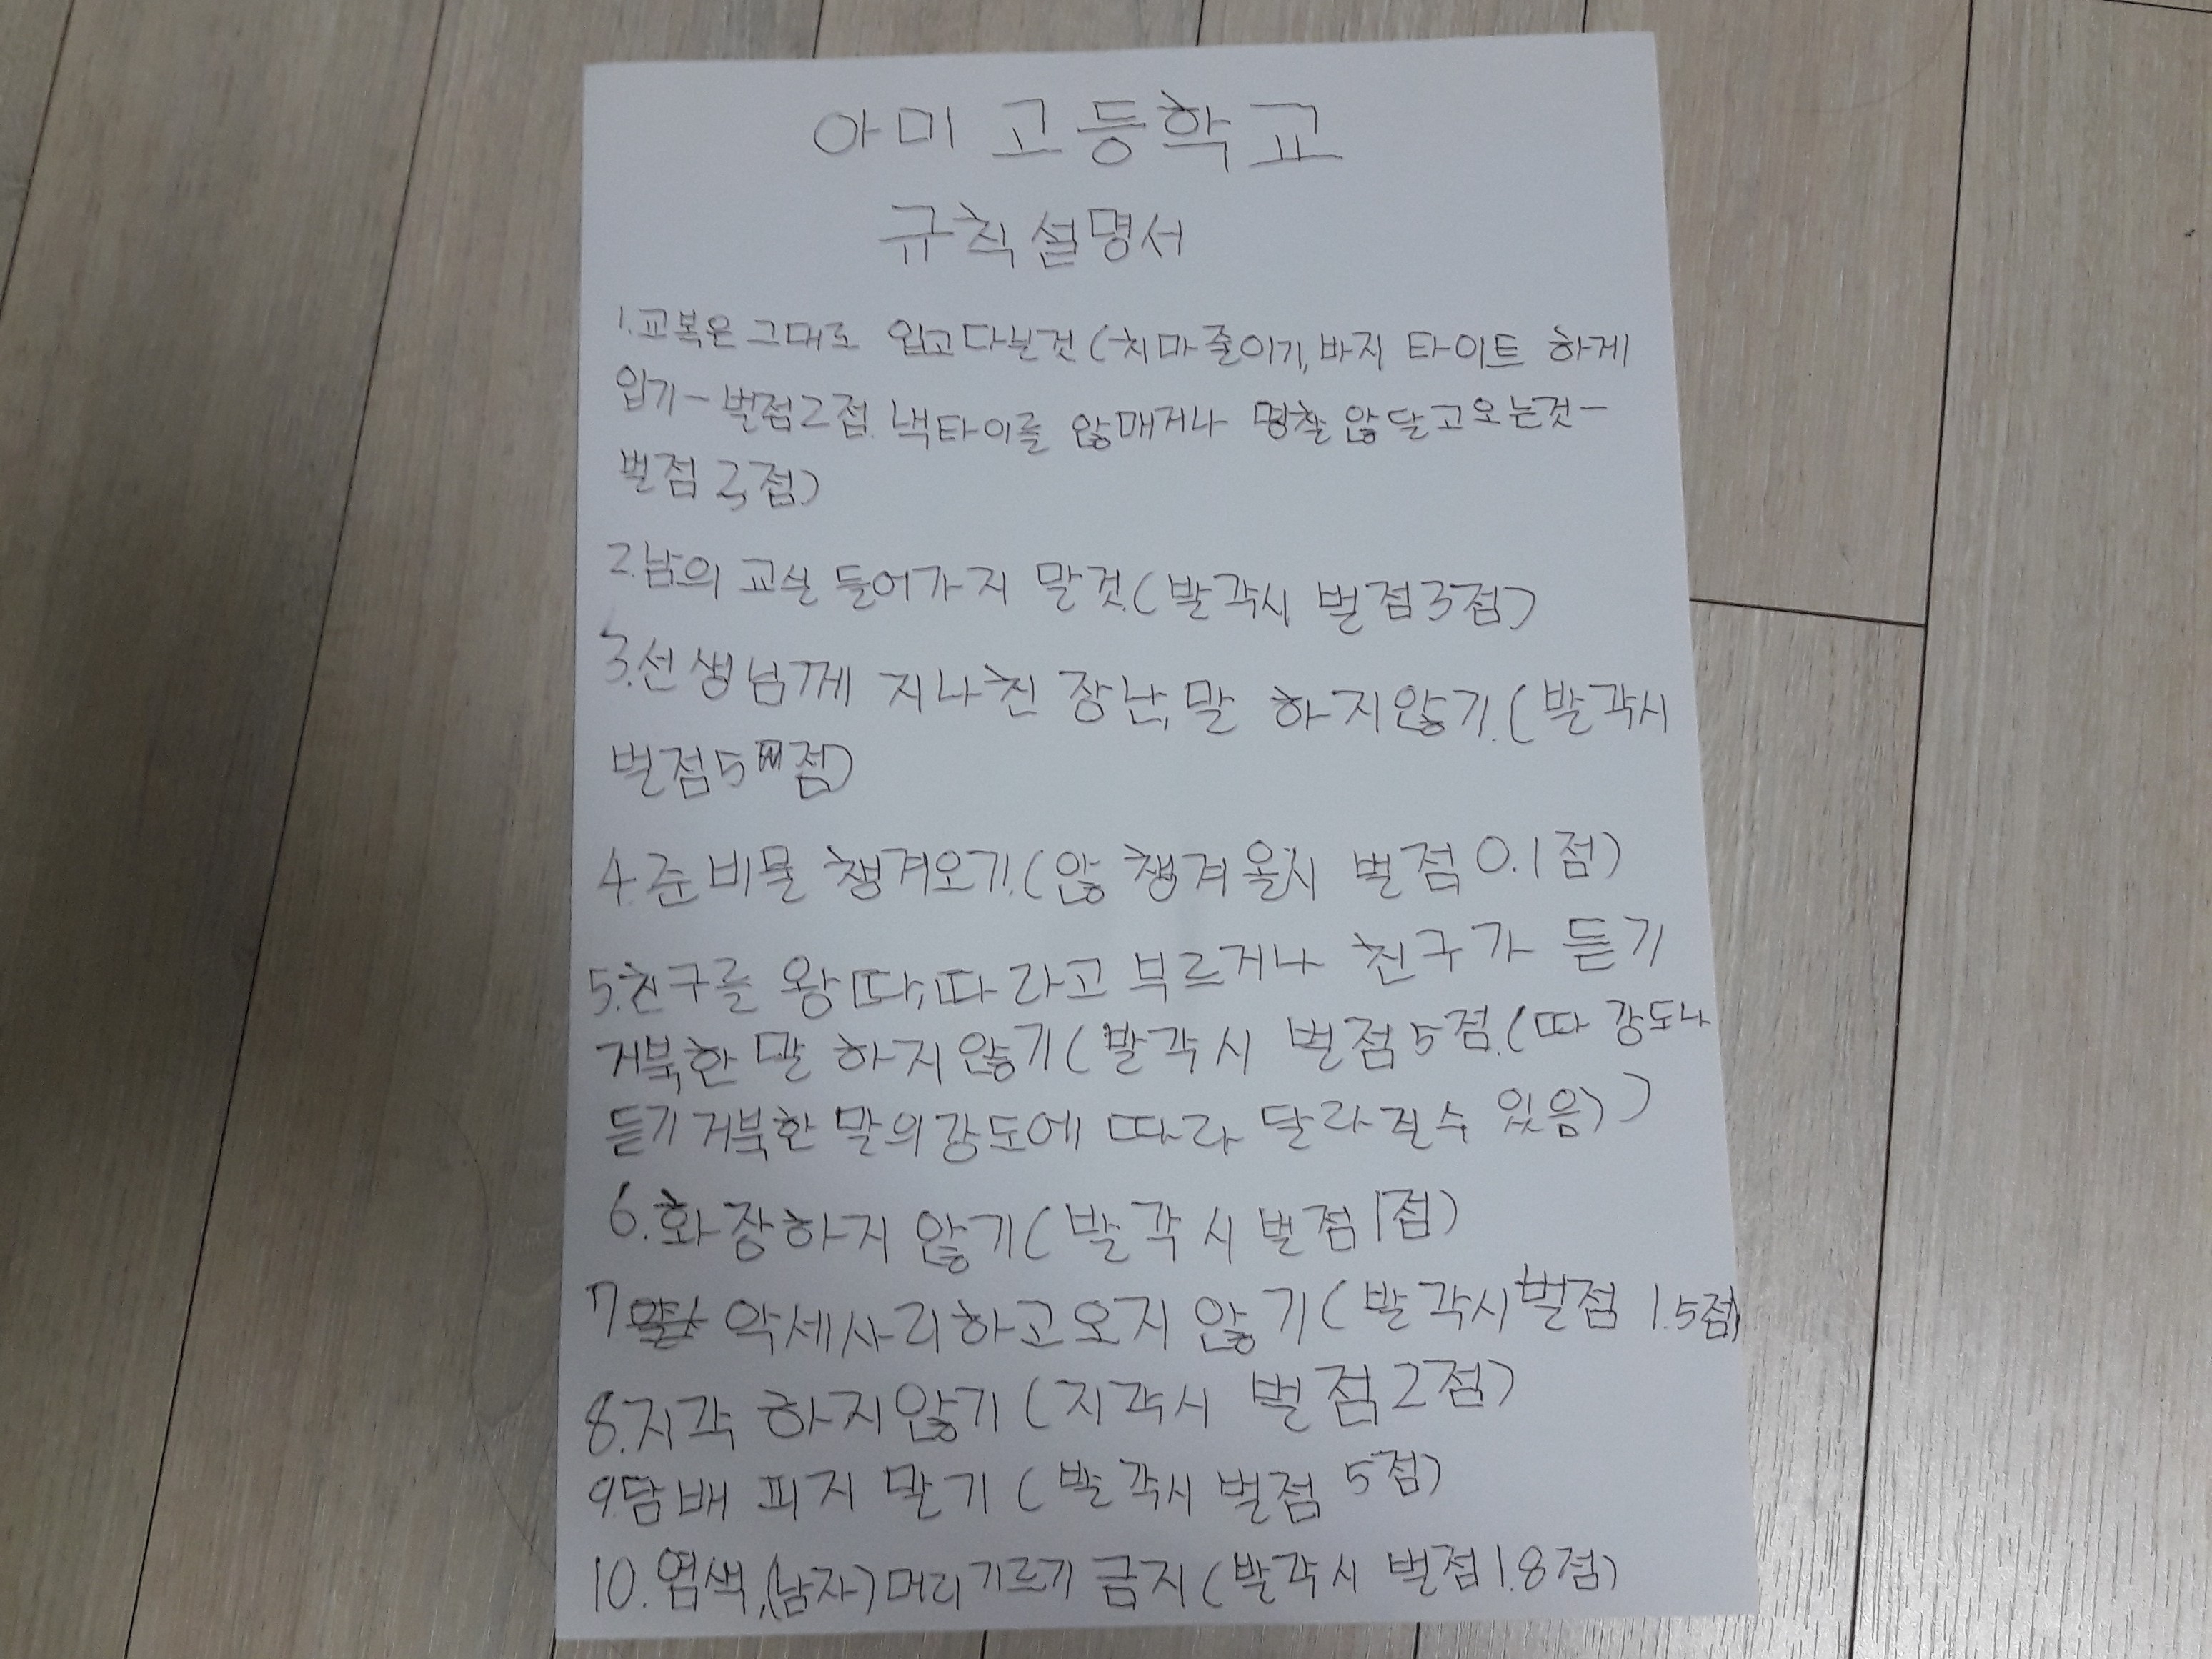 아미 고등학교
규칙설명서
1. 교복은 그대로 입고다닐것 (치마줄이기, 바지 타이트 하게
입기-벌점2점. 넥타이를 않매거나 명찰 않달고오는것-
벌점 2점)
2.남의 교실 들어가지 말것.(발각시 벌점3점)
3.선생님께 지나친 장난,말 하지않기.(발각시
벌점5점)
4.준비물 챙겨오기.(않 챙겨올시 벌점0.1점)
5.친구를 왕따,따라고 부르거나 친구가 듣기
거북한 말 하지않기(발각시 벌점5점.(따 강도나
듣기거북한 말의강도에 따라 달라질수 있음))
6.화장하지 않기(발각시 벌점1점)
7 악세사리하고오지 않기(발각시벌점 1.5점)
8.지각 하지않기(지각시 벌점2점)
9.담배 피지 말기(발각시 벌점 5점)
10.염색,(남자)머리기르기 금지(발각시 벌점1.8점)